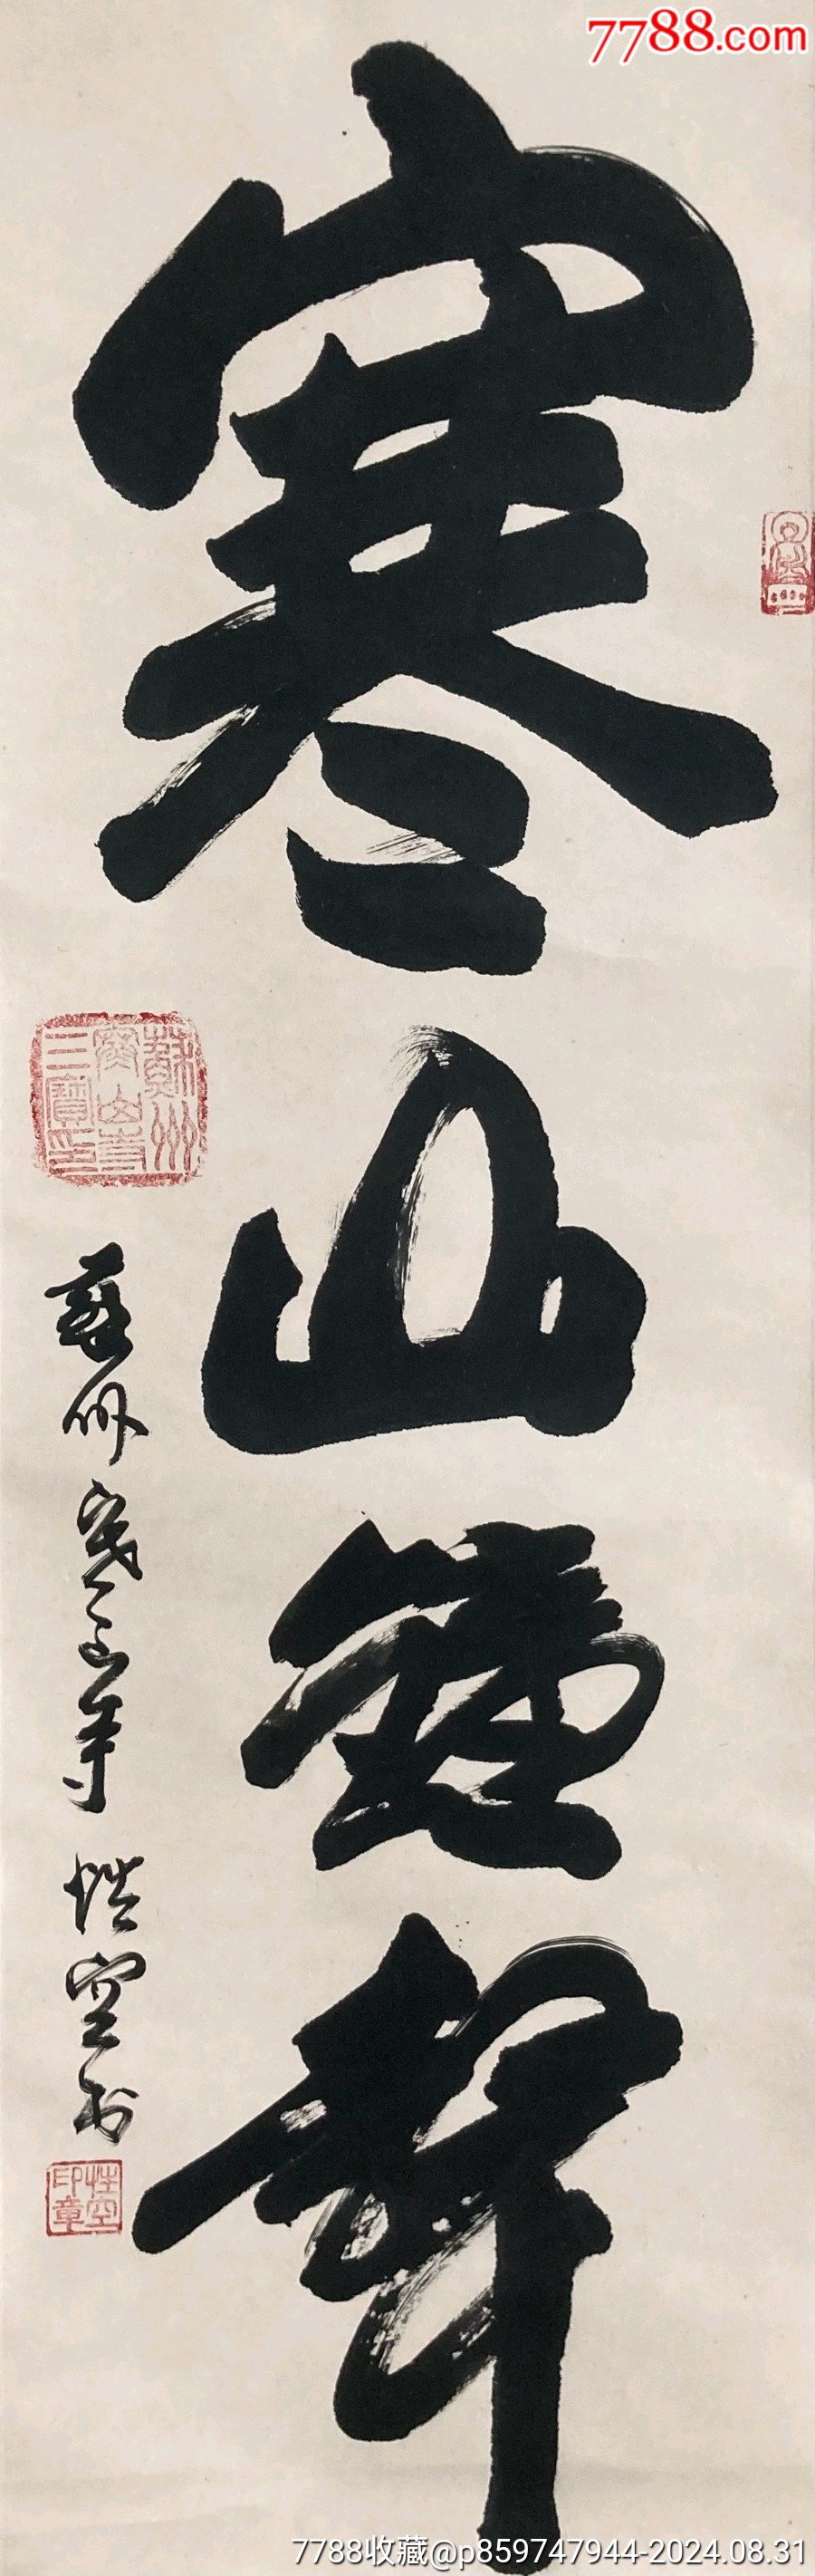 7788.com
寒山鐘聲
蘇州寒山寺
三寶印
蘇州寒山寺 性空书
性空印章
7788收藏@p859747944-2024.08.31